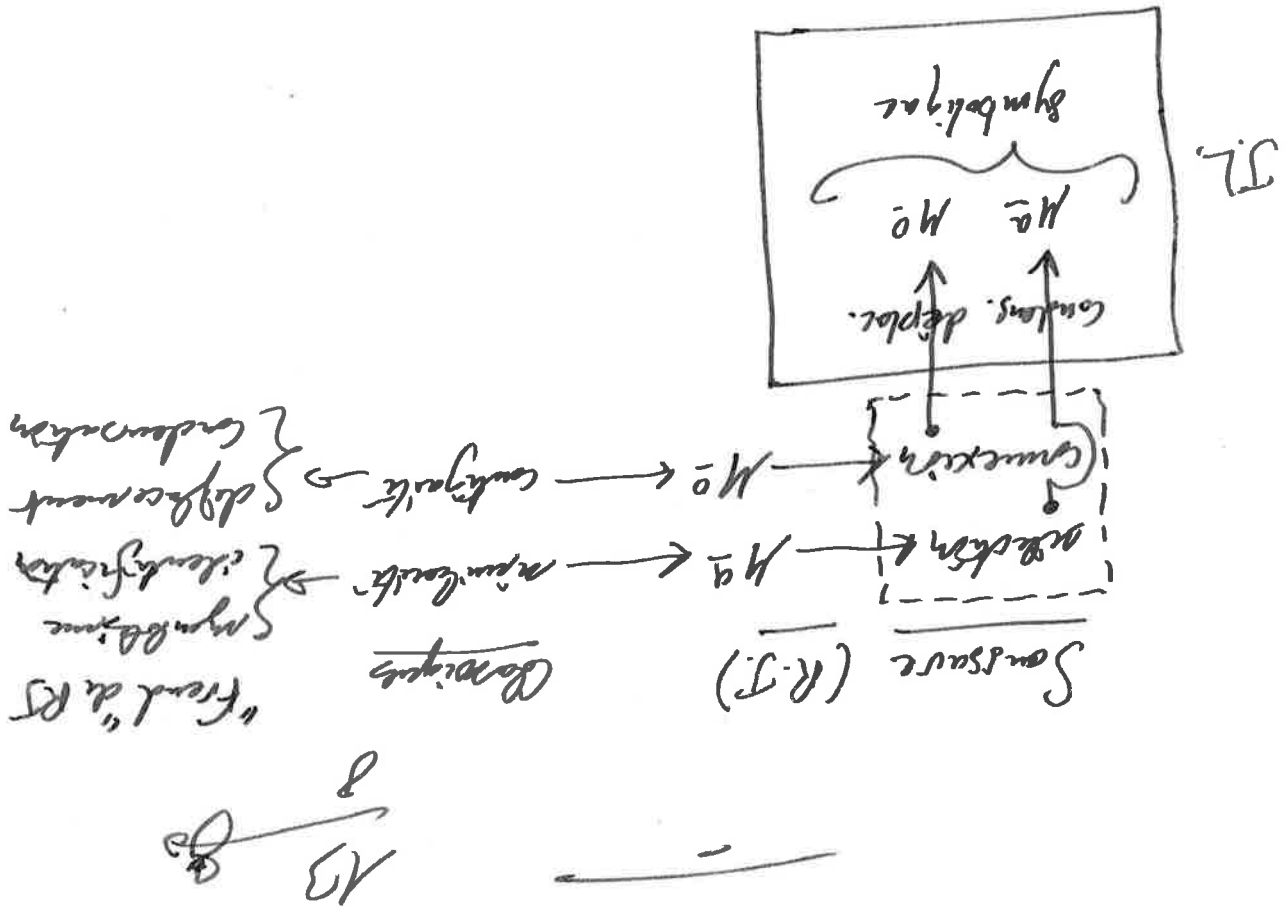 13
8
Saussure (R.J.) Classiques "Freud" de RJ
sélection Ma similarité symbolisme
identification
connexion Mo contiguïté déplacement
condensation
condens. déplac.
Ma Mo
J.L.
symbolique